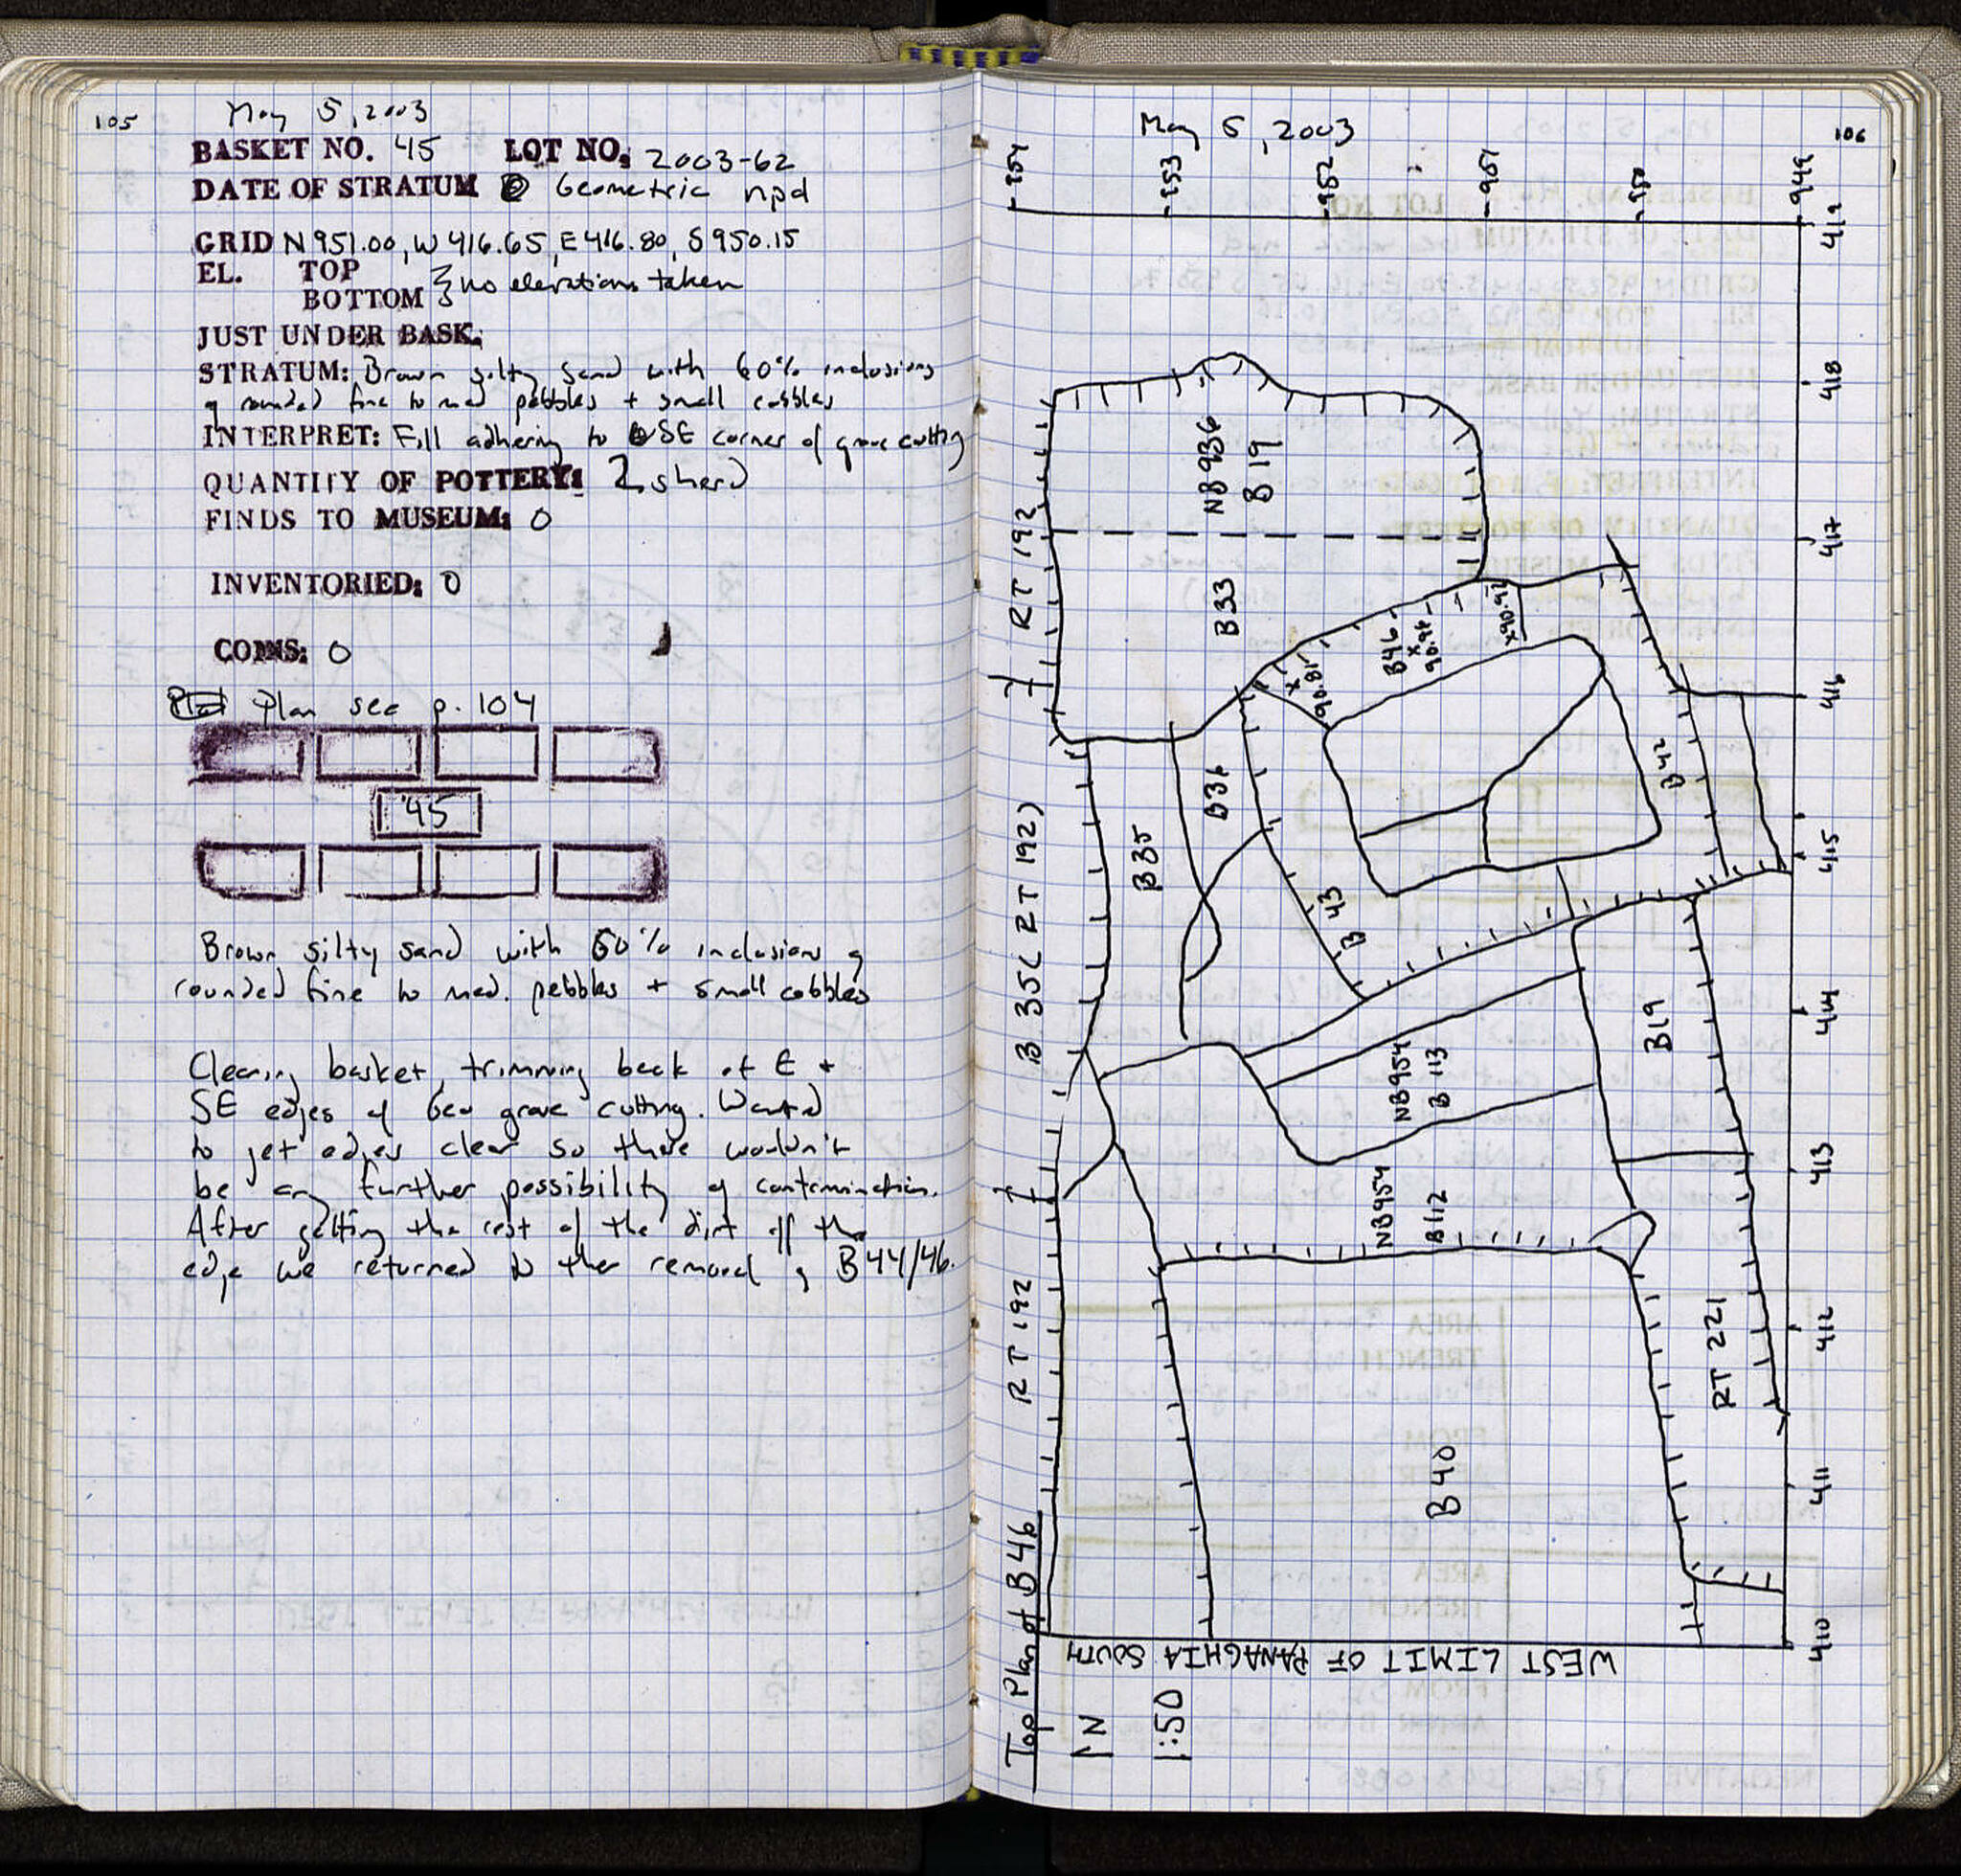 105
May 5, 2003
BASKET NO. 45 LOT NO. 2003-62
DATE OF STRATUM Geometric npd
GRID N951.00, W416.65, E416.80, S950.15
EL. TOP
BOTTOM } no elevations taken
JUST UNDER BASK.
STRATUM: Brown silty sand with 60% inclusions
of rounded fine to med pebbles + small cobbles
INTERPRET: Fill adhering to SE corner of grave cutting
QUANTITY OF POTTERY: 2 sherd
FINDS TO MUSEUM: 0
INVENTORIED: 0
COINS: 0
Plan see p. 104
45
Brown silty sand with 60% inclusions of
rounded fine to med. pebbles + small cobbles
Cleaning basket, trimming back of E +
SE edges of Geo grave cutting. Wanted
to get edges clear so there wouldn't
be any further possibility of contamination.
After getting the rest of the dirt off the
edge we returned to the removal of B44/46.
106
May 5, 2003
954
953
952
951
950
949
419
418
417
416
415
414
413
412
411
410
NB936
B19
RT 192
B33
B46
x
90.94
x90.92
x
90.81
B36
B35
B42
B43
B 35 ( RT 192)
B19
NB954
B113
NB954
B112
RT 192
RT 221
B40
WEST LIMIT OF PANAGHIA SOUTH
Top Plan of B46
N
1:50